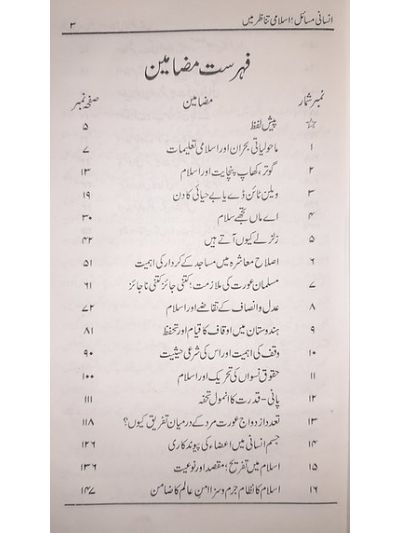 انسانی مسائل؛ اسلامی تناظر میں ۳
فہرست مضامین
نمبر شمار مضامین صفحہ نمبر
☆ پیش لفظ ۵
۱ ماحولیاتی بحران اور اسلامی تعلیمات ۷
۲ گوتر، کھاپ پنچایت اور اسلام ۱۳
۳ ویلن ٹائن ڈے یا بے حیائی کا دن ۱۹
۴ اے ماں تجھے سلام ۳۰
۵ زلزلے کیوں آتے ہیں ۴۲
۶ اصلاح معاشرہ میں مساجد کے کردار کی اہمیت ۵۱
۷ مسلمان عورت کی ملازمت؛ کتنی جائز کتنی ناجائز ۶۱
۸ عدل و انصاف کے تقاضے اور اسلام ۷۲
۹ ہندوستان میں اوقاف کا قیام اور تحفظ ۸۱
۱۰ وقف کی اہمیت اور اس کی شرعی حیثیت ۹۰
۱۱ حقوق نسواں کی تحریک اور اسلام ۱۰۰
۱۲ پانی - قدرت کا انمول تحفہ ۱۱۱
۱۳ تعدد ازدواج عورت مرد کے درمیان تفریق کیوں؟ ۱۱۸
۱۴ جسم انسانی میں اعضاء کی پیوندکاری ۱۲۶
۱۵ اسلام میں تفریح؛ مقصد اور نوعیت ۱۳۶
۱۶ اسلام کا نظام جرم و سزا امن عالم کا ضامن ۱۴۷